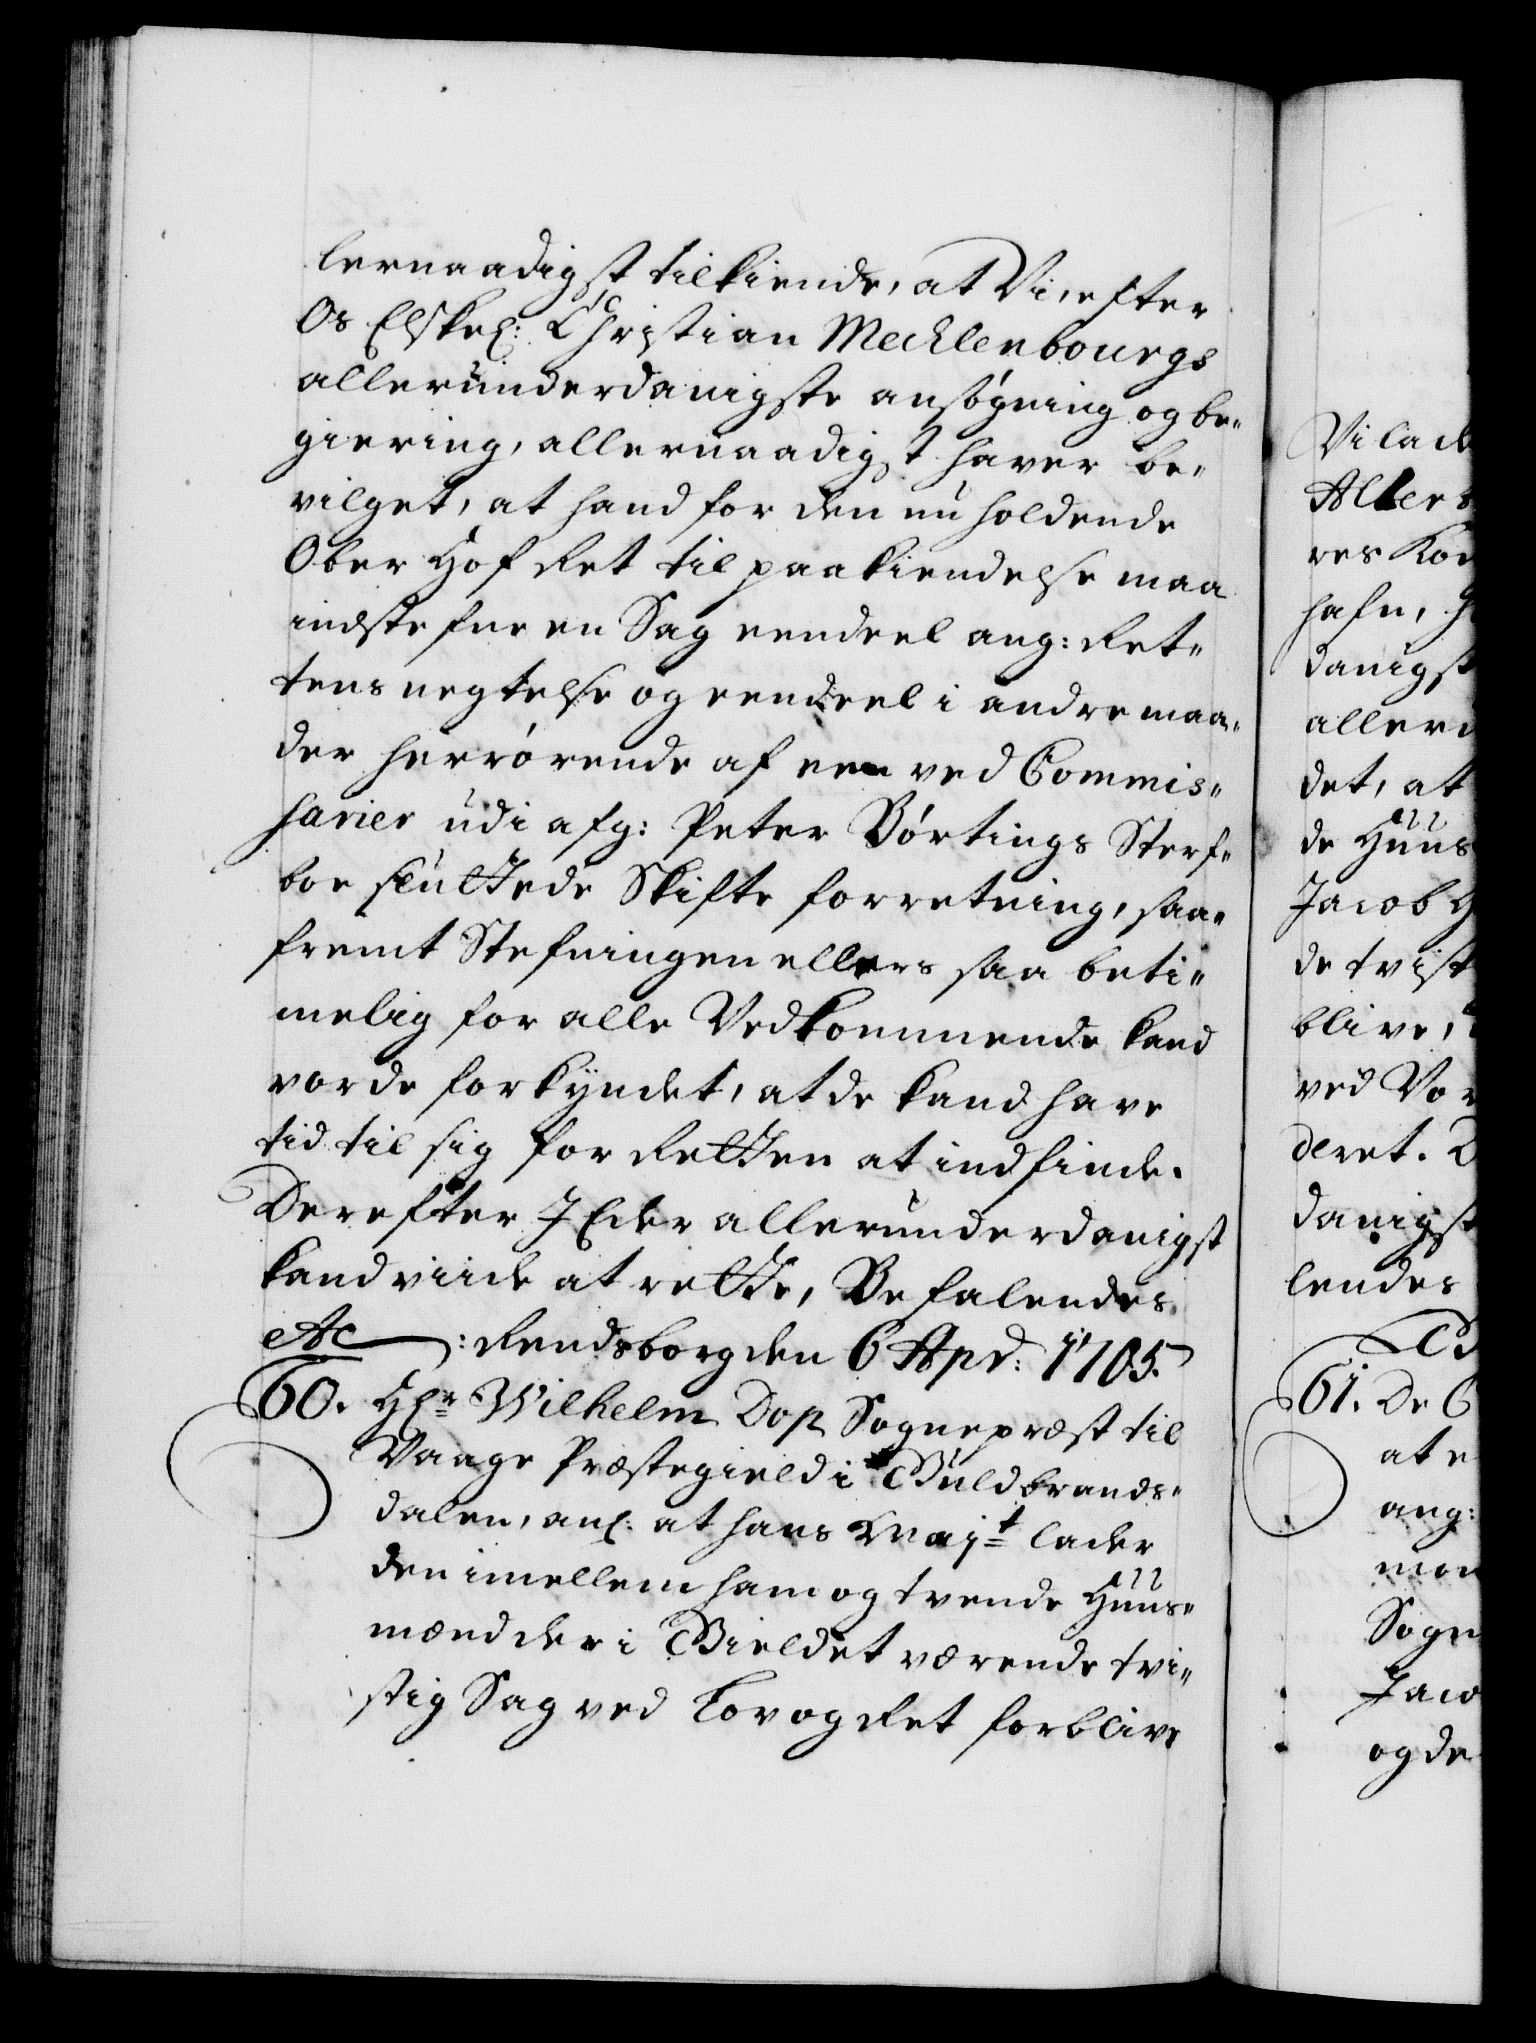 lernaadigst tilkiende, at Vi, efter
Os Elskel: Christian Mecklenbourgs
allerunderdanigste ansøgning og be-
giering, allernaadigst haver be-
vilget, at hand for den nu holdende
Ober Hof Ret til paakiendelse maa
indstefne en Sag eendeel ang: Ret-
tens negtelse og eendeel i andre maa-
der herrørende af een ved Commis-
sarier udi afg: Peter Børtings Sterf-
boe sluttede Skifte forretning, saa-
fremt Stefningen ellers saa beti-
melig for alle Vedkommende kand
vorde forkyndet, at de kand have
tid til sig for Retten at indfinde.
Derefter I Eder allerunderdanigst
kand viide at rette, Befalendes
etc: Rendsborg den 6 Apr: 1705.
60. Hr Wilhelm Dop Sognepræst til
Vaage Præstegield i Guldbrands-
dalen, anl: at hans Majt lader
den imellem ham og tvende Huus-
mænd der i Gieldet værende tvi-
stig Sag ved Lov og Ret forblive
Vi lade
res
hafn,
danigst
det, at
de Huus
Jacob
de tvist
blive,
ved Vor
deret.
danigst
lendes
61. De
at
ang:
Sogn
Jaco
og de